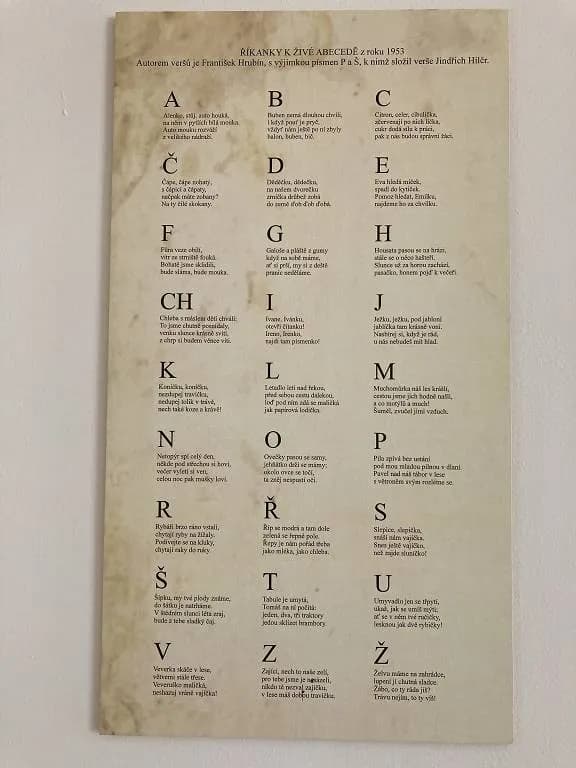 ŘÍKANKY K ŽIVÉ ABECEDĚ z roku 1953
Autorem veršů je František Hrubín, s výjimkou písmen P a Š, k nimž složil verše Jindřich Hilčr.
A
Alenko, stůj, auto houká,
na něm v pytlích bílá mouka.
Auto mouku rozváží
z velikého nádraží.
B
Buben nemá dlouhou chvíli,
i když pouť je pryč,
vždyť nám ještě po ní zbyly
balon, buben, bič.
C
Citron, celer, cibulička,
zčervenají po nich líčka,
cukr dodá sílu k práci,
pak z nás budou správní žáci.
Č
Čápe, čápe zobatý,
s čápicí a čápaty,
nečpak máte zobany?
Na ty čilé skokany.
D
Dědečku, dědečku,
na našem dvorečku
zrníčka drůbež zobá
do země ťob ďob ďobá.
E
Eva hledá míček,
spadl do kytiček.
Pomoz hledat, Emilku,
najdeme ho za chvilku.
F
Fůra veze obilí,
vítr ze strniště fouká.
Bohatě jsme sklidili,
bude sláma, bude mouka.
G
Galoše a pláště z gumy
když na sobě máme,
ať si prší, my si z deště
pranic neděláme.
H
Housata pasou se na hrázi,
stále se o něco hašteří.
Slunce už za horou zachází,
pasačko, honem pojď k večeři.
CH
Chleba s máslem děti chválí:
To jsme chutně posnídaly,
venku slunce krásně svítí,
z chrp si budem věnce víti.
I
Ivane, Ivánku,
otevři čítanku!
Ireno, Irenko,
najdi tam písmenko!
J
Ježku, ježku, pod jabloní
jablíčka tam krásně voní.
Nasbírej si, když je rád,
u nás nebudeš mít hlad.
K
Koníčku, koníčku,
nezdupej travičku,
nedupej tolik v trávě,
nech také koze a krávě!
L
Letadlo letí nad řekou,
před sebou cestu dalekou,
loď pod ním zdá se maličká
jak papírová lodička.
M
Muchomůrka nás les krášlí,
cestou jsme jich hodně našli,
a co motýlů a much!
Šuměl, zvučel jimi vzduch.
N
Netopýr spí celý den,
někde pod střechou si hoví,
večer vyletí si ven,
celou noc pak mušky loví.
O
Ovečky pasou se samy,
jehňátko drží se mámy;
okolo ovce se točí,
ta z něj nespustí oči.
P
Pila zpívá bez ustání
pod mou mladou pilnou v dlani
Pavel nad náš tábor v lese
s větroněm svým rozletěme se.
R
Rybáři brzo ráno vstali,
chytají ryby na žížaly.
Podívejte se na kluky,
chytají raky do ruky.
Ř
Říp se modrá a tam dole
zelená se řepné pole.
Řepy je nám pořád třeba
jako mléka, jako chleba.
S
Slepice, slepička,
snáší nám vajíčka.
Snes ještě vajíčko,
než zajde sluníčko!
Š
Šípku, my tvé plody známe,
do šátku je natrháme.
V štědrém slunci léta zraj,
bude z tebe sladký čaj.
T
Tabule je umytá,
Tomáš na ní počítá:
jeden, dva, tři traktory
jedou sklízet brambory.
U
Umyvadlo jen se třpytí,
ukaž, jak se umíš mýti;
ať se v něm tvé ručičky,
lesknou jak dvě rybičky!
V
Veverka skáče v lese,
větvemi stále třese.
Veveruško maličká,
neshazuj vráně vajíčka!
Z
Zajíci, nech to naše zelí,
pro tebe jsme je nesázeli,
nikdo tě nezval zajíčku,
v lese máš dobrou travičku.
Ž
Želvu máme na zahrádce,
lupení jí chutná sladce.
Žábo, co ty ráda jíš?
Trávu nejím, to ty víš!